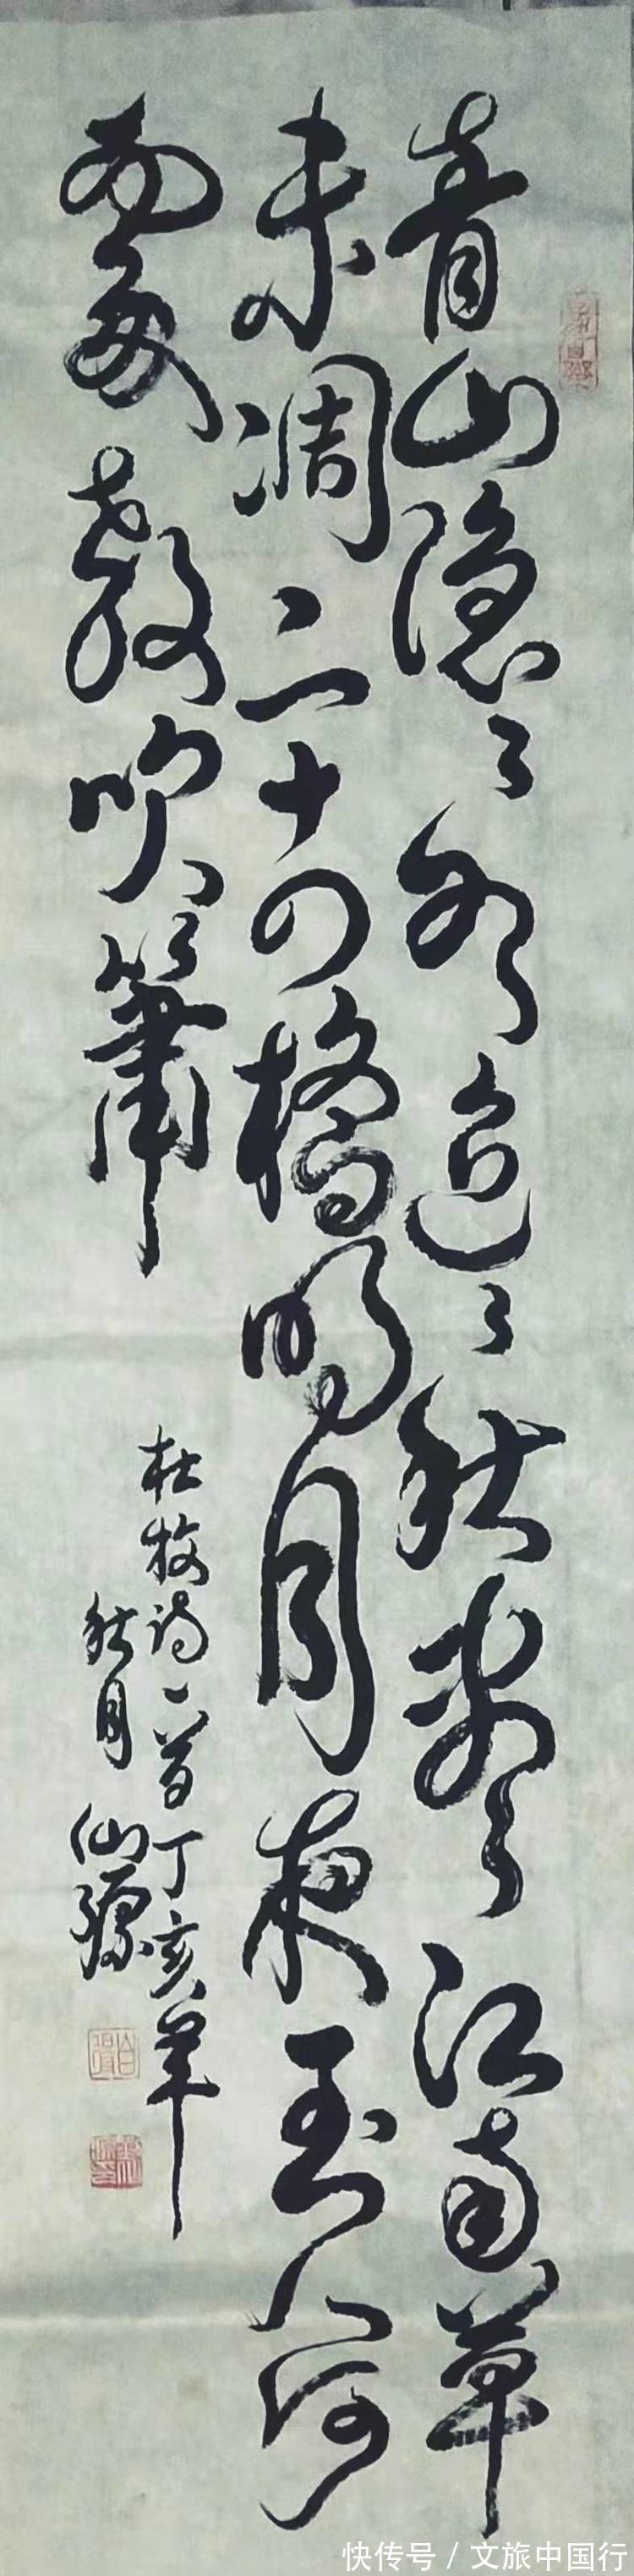 青山隐々水迢々秋尽江南草
未凋二十四橋明月夜玉人何
處教吹簫
杜牧诗一首丁亥年
秋月仙
快传号 / 文旅中国行